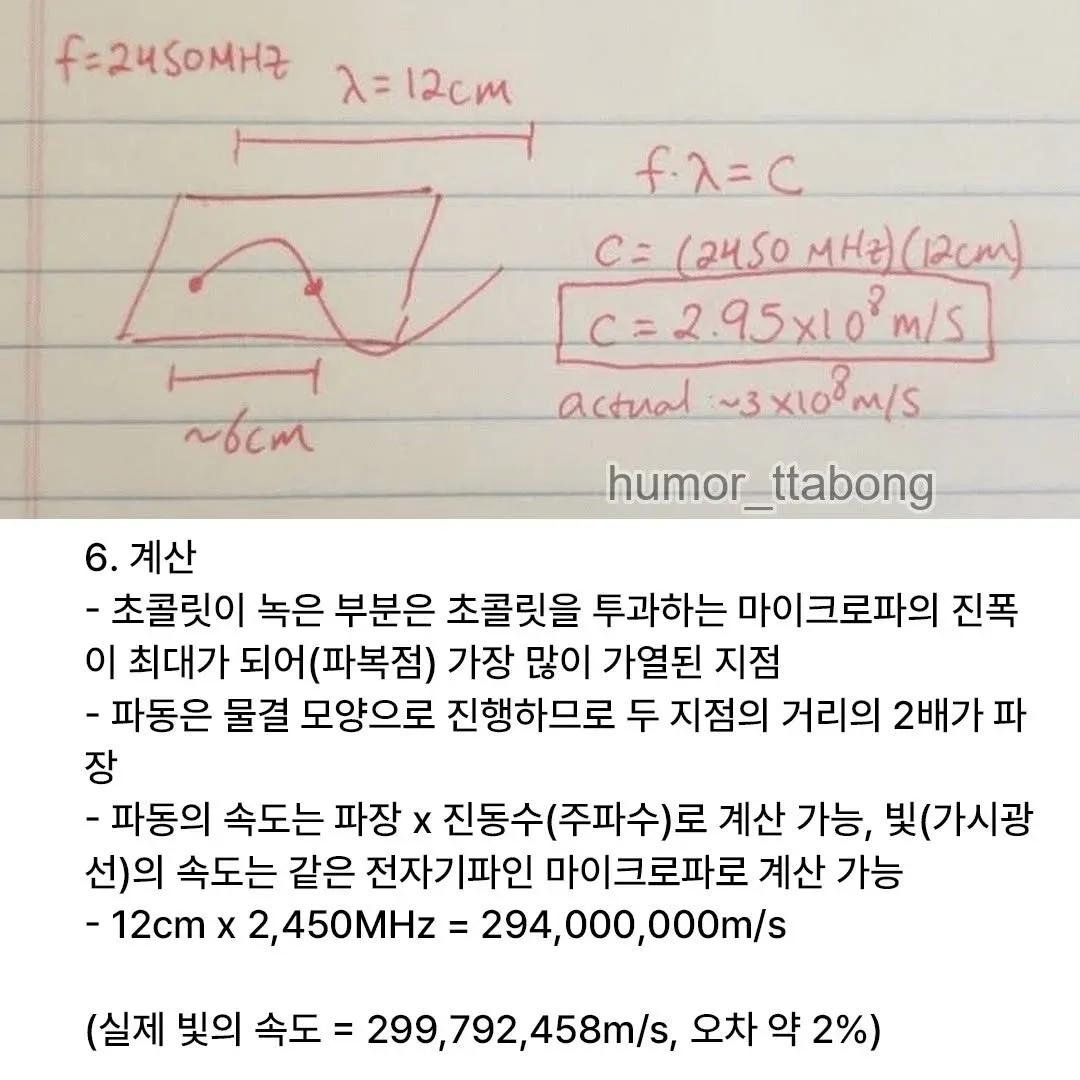 f=2450MHZ
λ=12cm
f·λ=C
C=(2450 MHz)(12cm)
C=2.95x10⁸m/s
~6cm
actual:~3x10⁸m/s
humor_ttabong
6. 계산
- 초콜릿이 녹은 부분은 초콜릿을 투과하는 마이크로파의 진폭
이 최대가 되어(파복점) 가장 많이 가열된 지점
- 파동은 물결 모양으로 진행하므로 두 지점의 거리의 2배가 파
장
- 파동의 속도는 파장 x 진동수(주파수)로 계산 가능, 빛(가시광
선)의 속도는 같은 전자기파인 마이크로파로 계산 가능
- 12cm x 2,450MHz = 294,000,000m/s
(실제 빛의 속도 = 299,792,458m/s, 오차 약 2%)